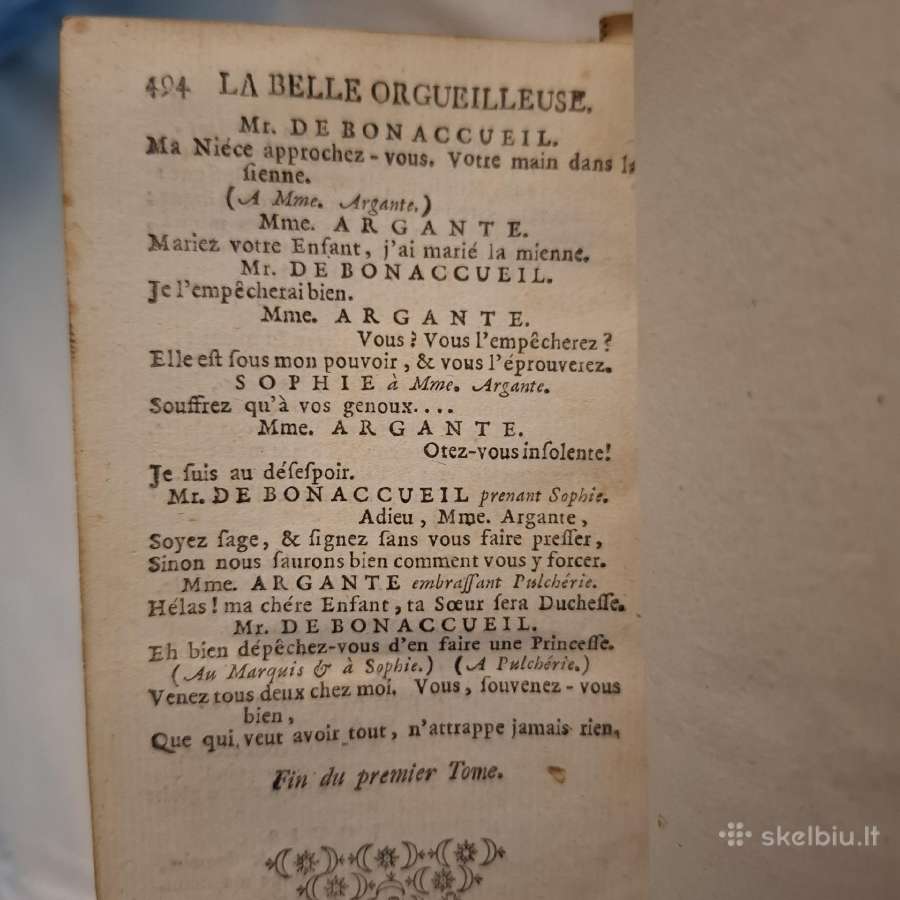 494 LA BELLE ORGUEILLEUSE.
Mr. DE BONACCUEIL.
Ma Niéce approchez-vous. Votre main dans la
ſienne.
(A Mme. Argante.)
Mme. ARGANTE.
Mariez votre Enfant, j'ai marié la mienne.
Mr. DE BONACCUEIL.
Je l'empêcherai bien.
Mme. ARGANTE.
Vous? Vous l'empêcherez?
Elle eſt ſous mon pouvoir, & vous l'éprouverez.
SOPHIE à Mme. Argante.
Souffrez qu'à vos genoux....
Mme. ARGANTE.
Otez-vous inſolente!
Je ſuis au déſeſpoir.
Mr. DE BONACCUEIL prenant Sophie.
Adieu, Mme. Argante,
Soyez ſage, & ſignez ſans vous faire preſſer,
Sinon nous ſaurons bien comment vous y forcer.
Mme. ARGANTE embraſſant Pulchérie.
Hélas! ma chére Enfant, ta Sœur ſera Ducheſſe.
Mr. DE BONACCUEIL.
Eh bien dépêchez-vous d'en faire une Princeſſe.
(Au Marquis & à Sophie.) (A Pulchérie.)
Venez tous deux chez moi. Vous, ſouvenez-vous
bien,
Que qui veut avoir tout, n'attrappe jamais rien.
Fin du premier Tome.
skelbiu.lt